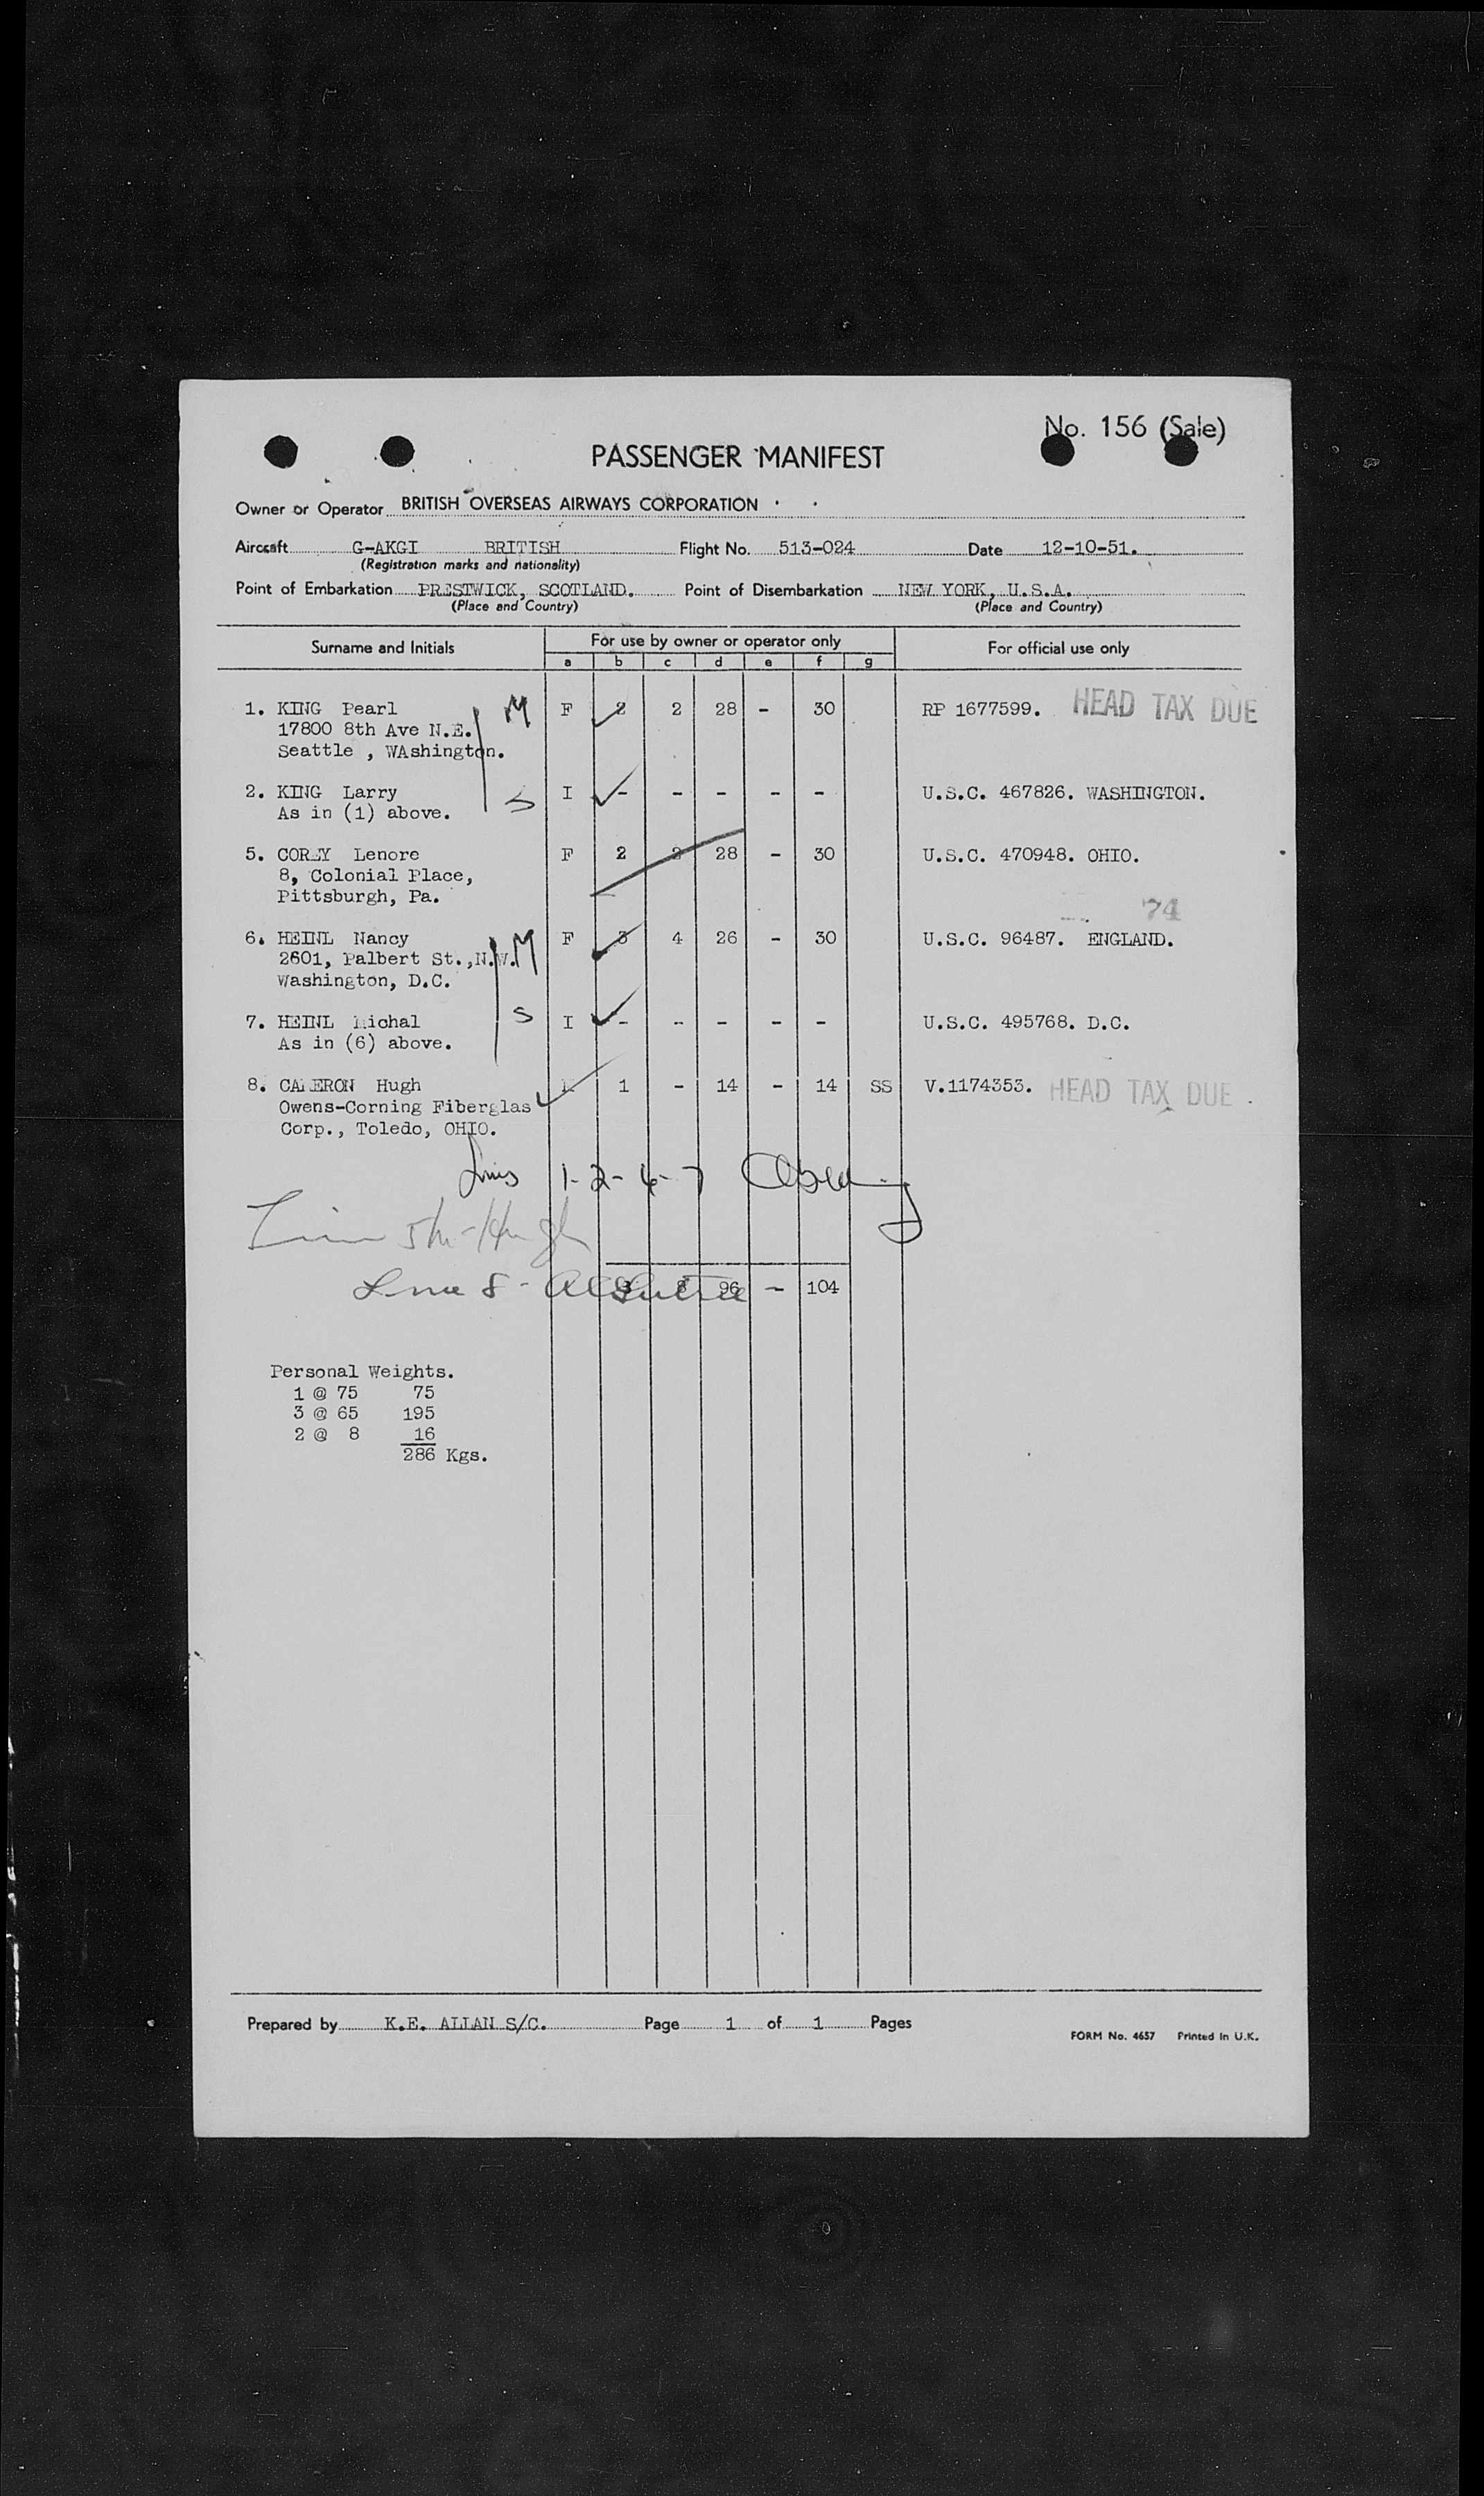 No. 156 (Sale)
PASSENGER MANIFEST
Owner or Operator BRITISH OVERSEAS AIRWAYS CORPORATION
Aircraft G-AKGI BRITISH Flight No. 513-024 Date 12-10-51.
(Registration marks and nationality)
Point of Embarkation PRESTWICK, SCOTLAND. Point of Disembarkation NEW YORK, U.S.A.
(Place and Country) (Place and Country)
Surname and Initials For use by owner or operator only For official use only
a b c d e f g
1. KING Pearl M F 2 2 28 - 30 RP 1677599. HEAD TAX DUE
17800 8th Ave N.E.
Seattle , WAshington.
2. KING Larry S I - - - - - U.S.C. 467826. WASHINGTON.
As in (1) above.
5. COREY Lenore F 2 2 28 - 30 U.S.C. 470948. OHIO.
8, Colonial Place,
Pittsburgh, Pa.
74
6. HEINL Nancy M F 3 4 26 - 30 U.S.C. 96487. ENGLAND.
2601, Palbert St.,N.W.
Washington, D.C.
7. HEINL Michal S I - - - - - U.S.C. 495768. D.C.
As in (6) above.
8. CAMERON Hugh 1 - 14 - 14 SS V.1174353. HEAD TAX DUE .
Owens-Corning Fiberglas
Corp., Toledo, OHIO.
1-2-6-7
Line 8 -
8 96 - 104
Personal Weights.
1 @ 75 75
3 @ 65 195
2 @ 8 16
286 Kgs.
Prepared by K.E. ALLAN S/C. Page 1 of 1 Pages
FORM No. 4657 Printed in U.K.